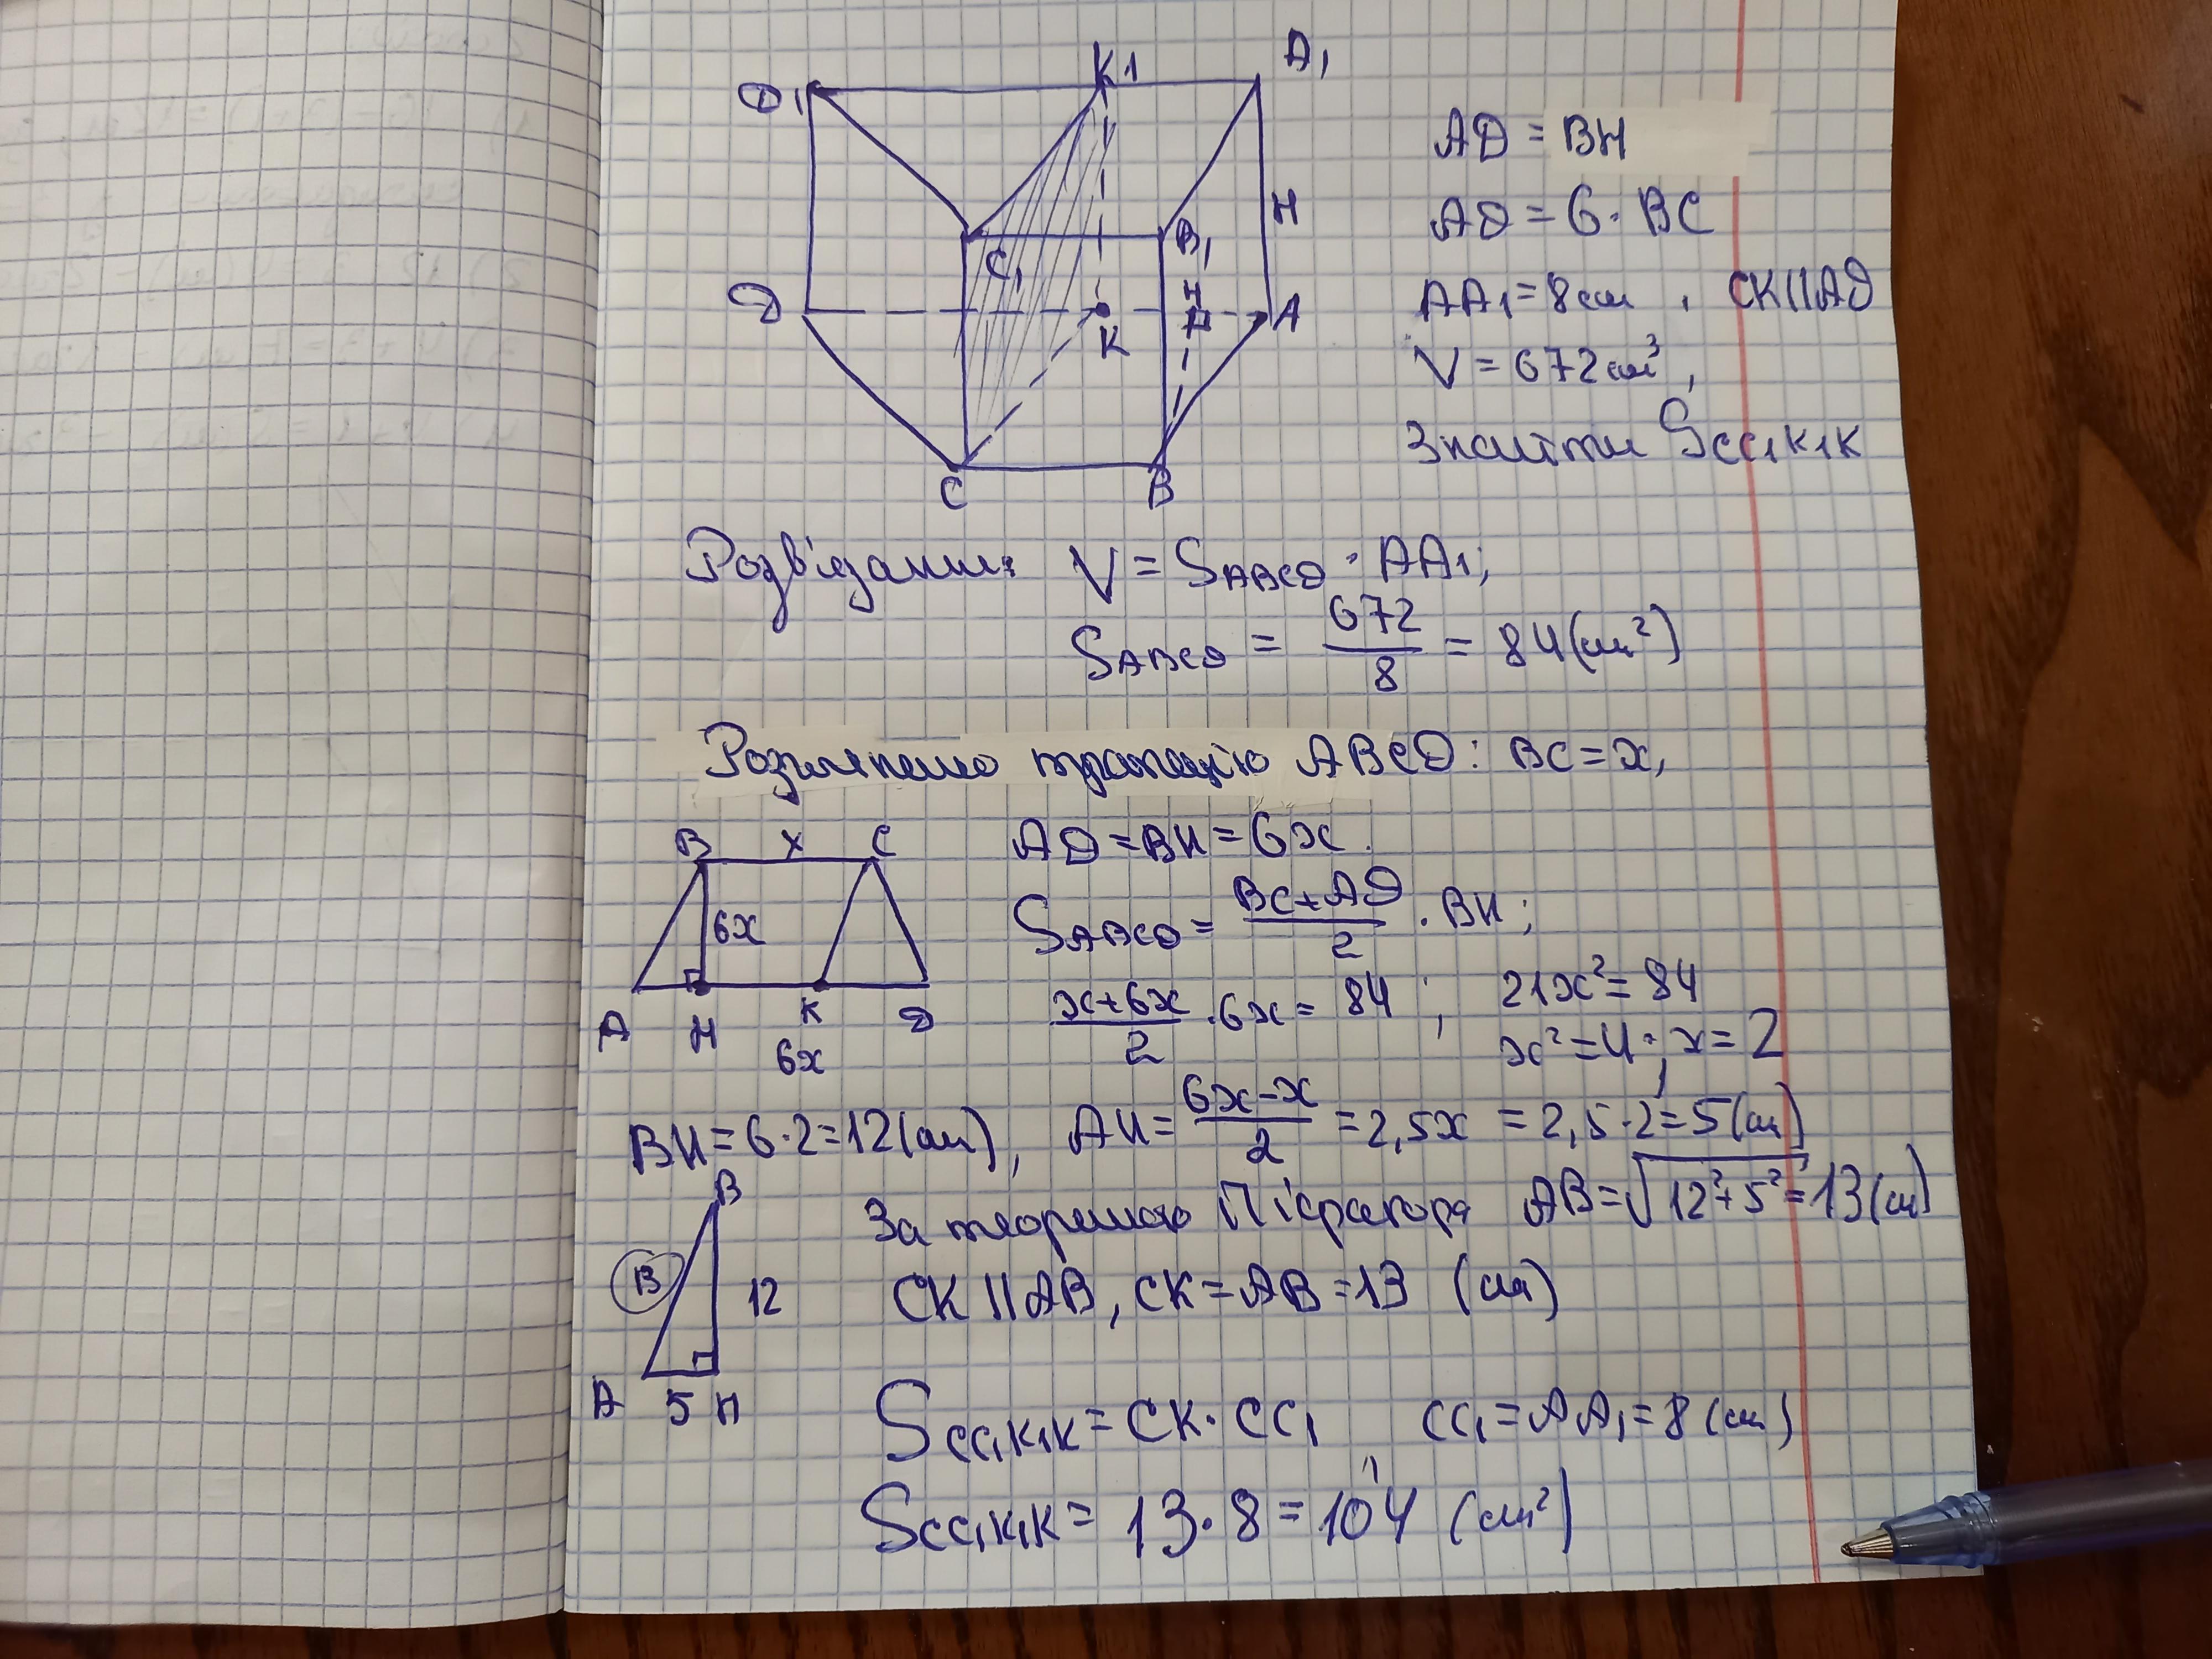 K1
A1
D1
AD = BH
AD = 6 · BC
H
B1
C1
AA1 = 8 см , CK||AD
D
H
A
K
V = 672 см³,
Знайти SCC1K1K
C
B
Розв'язання: V = SABCD · AA1;
SABCD = 672/8 = 84 (см²)
Розглянемо трапецію ABCD: BC = x,
B x C
AD = BH = 6x.
6x
SABCD = (BC + AD)/2 · BH;
A H K D
6x
(x + 6x)/2 · 6x = 84 ; 21x² = 84
x² = 4 ; x = 2
BH = 6 · 2 = 12 (см), AH = (6x − x)/2 = 2,5x = 2,5 · 2 = 5 (см)
B
За теоремою Піфагора AB = √12² + 5² = 13 (см)
13
12
CK || AB, CK = AB = 13 (см)
A 5 H
SCC1K1K = CK · CC1 , CC1 = AA1 = 8 (см)
SCC1K1K = 13 · 8 = 104 (см²)